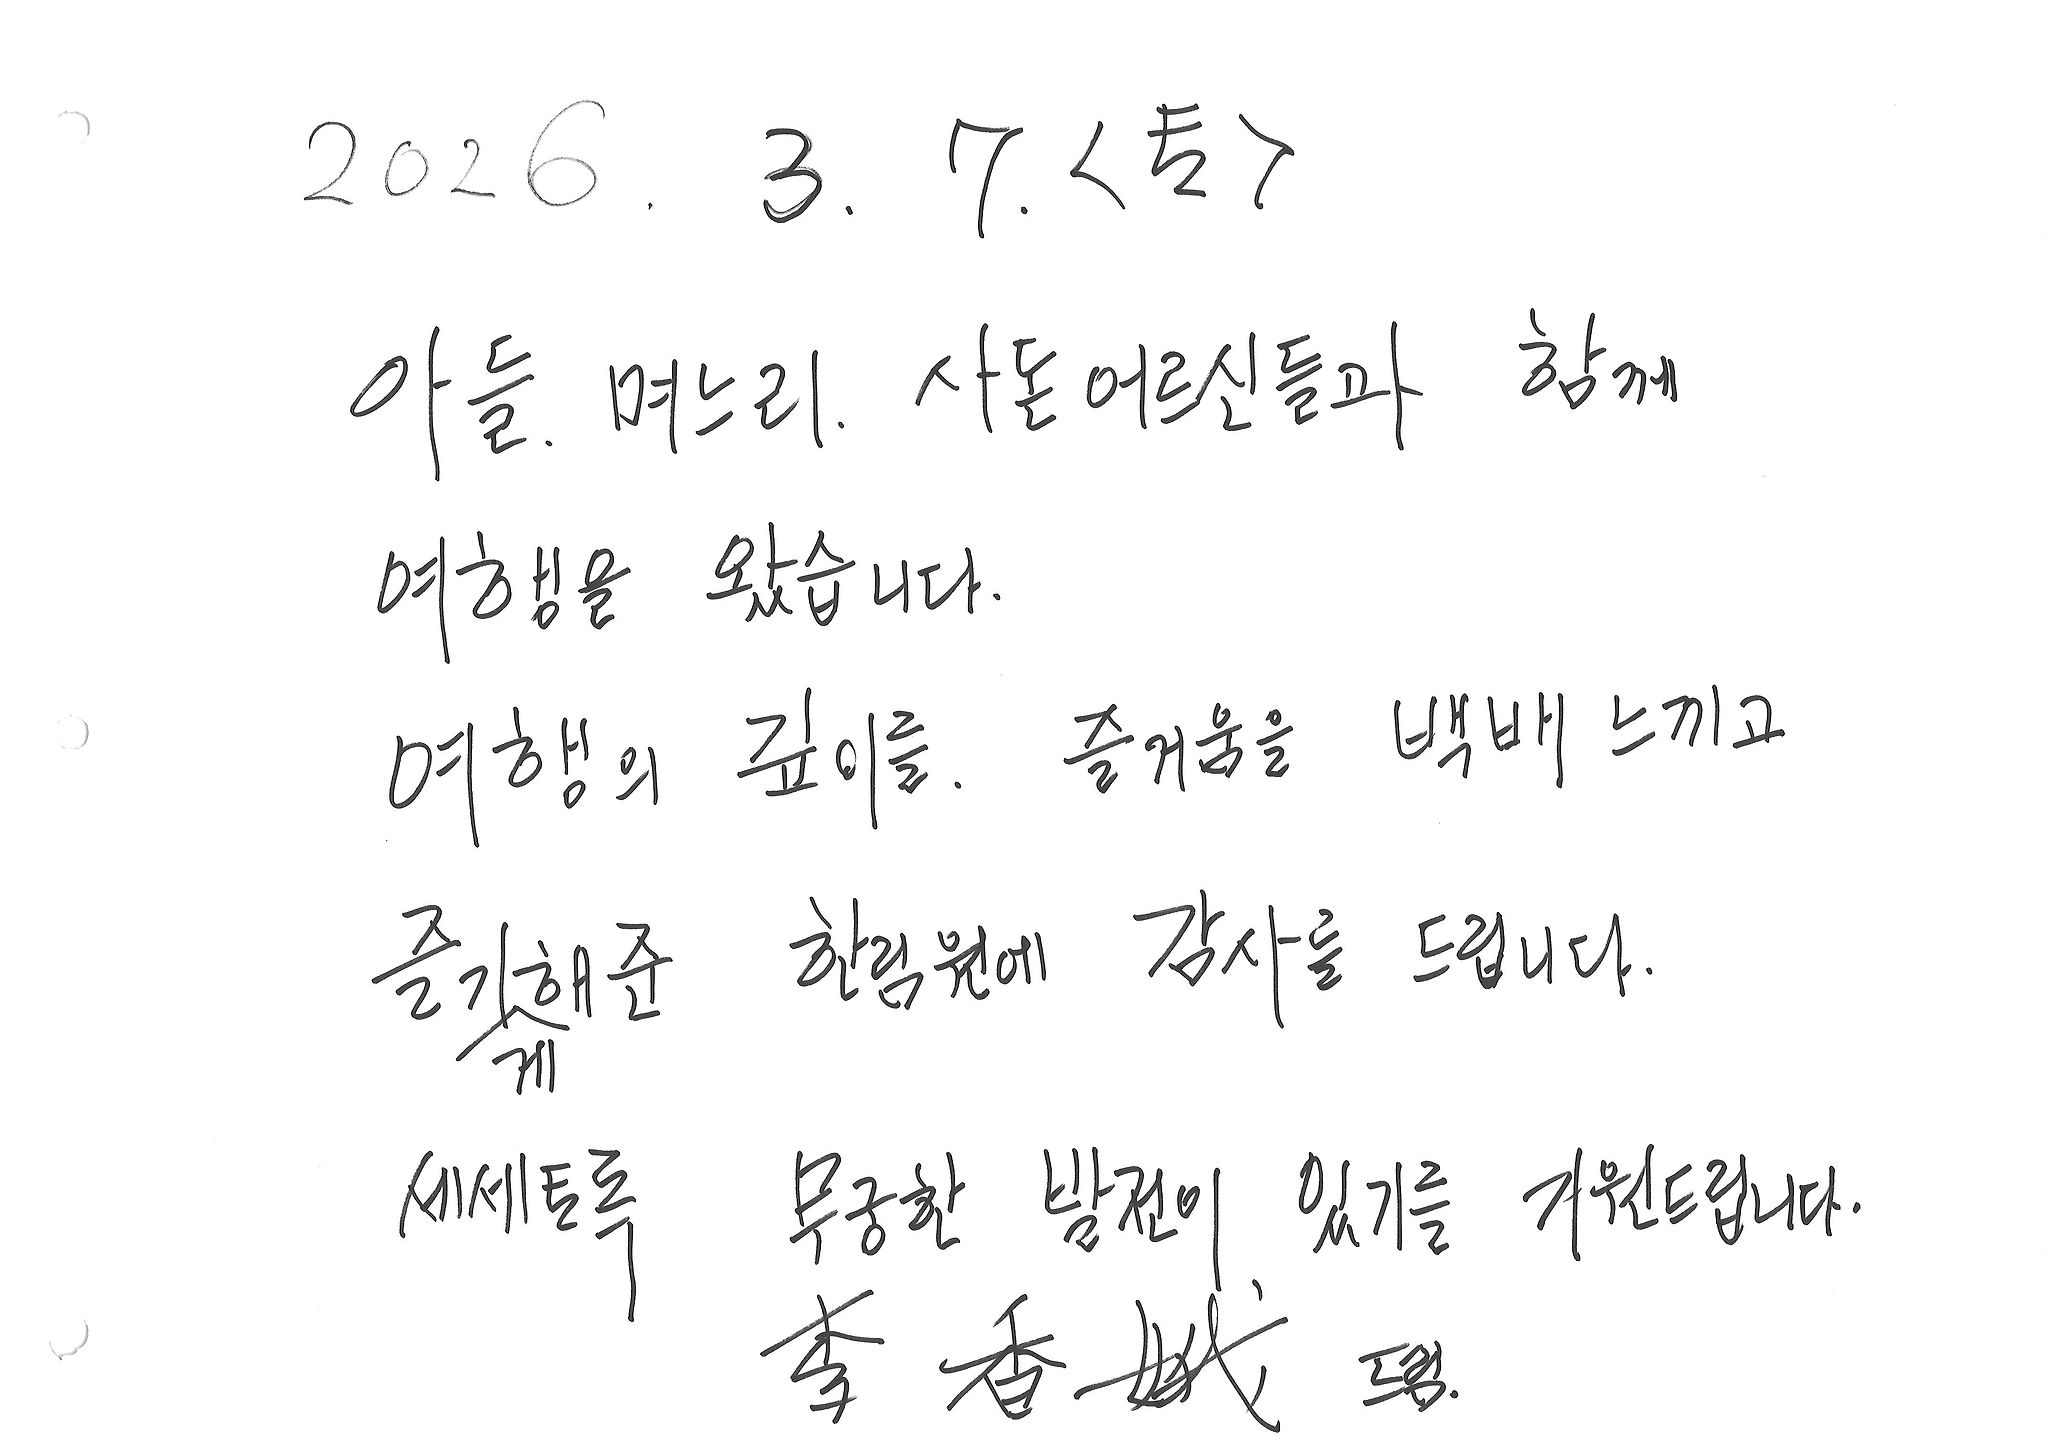 2026. 3. 7. <토>
아들. 며느리. 사돈어르신들과 함께
여행을 왔습니다.
여행의 깊이를. 즐거움을 백배 느끼고
즐기해준 한림원에 감사를 드립니다.
게
세세토록 무궁한 발전이 있기를 기원드립니다.
李 香 娥 드림.